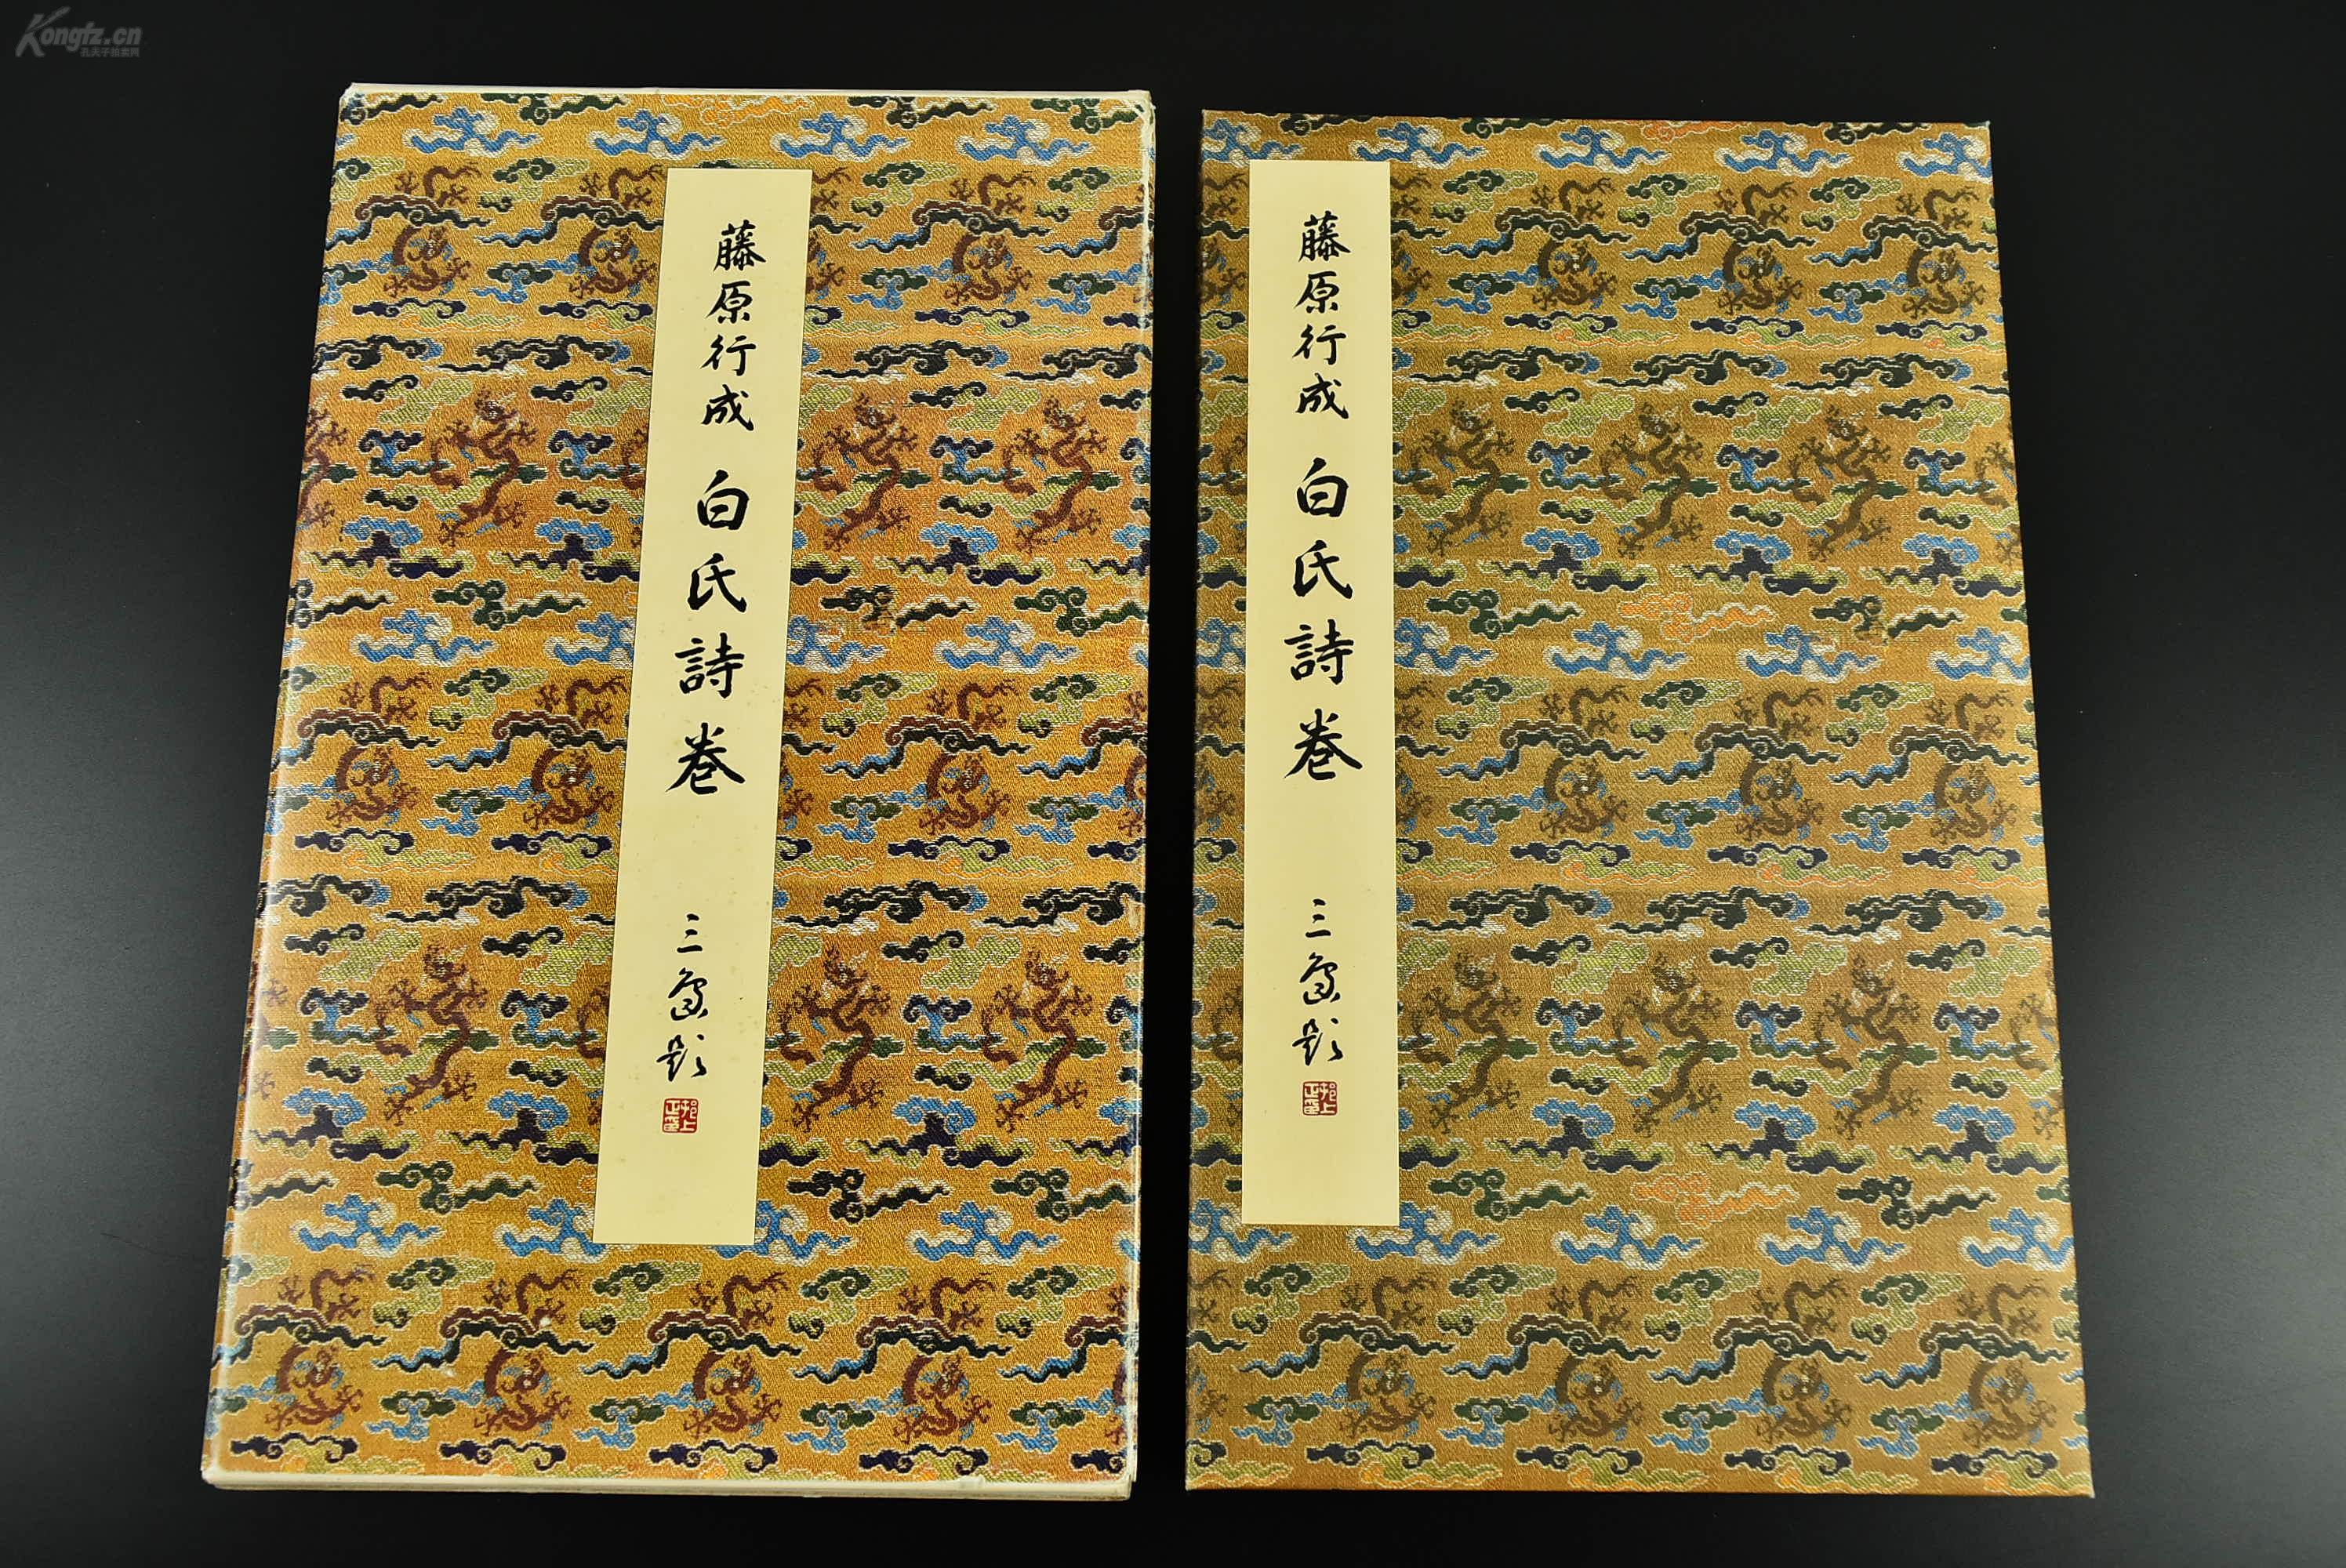 Kongfz.cn
孔夫子拍卖网
藤原行成 白氏詩卷
三島題
藤原行成 白氏詩卷
三島題